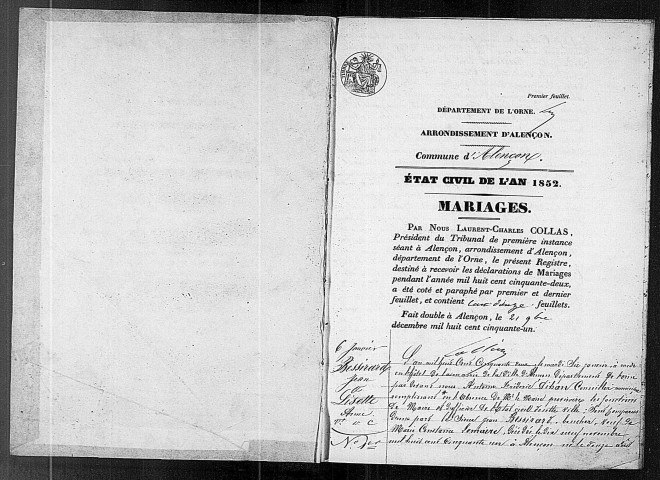 Premier feuillet.
DÉPARTEMENT DE L'ORNE.
ARRONDISSEMENT D'ALENÇON.
Commune d'Alençon.
ÉTAT CIVIL DE L'AN 1852.
MARIAGES.
PAR NOUS LAURENT-CHARLES COLLAS,
Président du Tribunal de première instance
séant à Alençon, arrondissement d'Alençon,
département de l'Orne, le présent Registre,
destiné à recevoir les déclarations de Mariages
pendant l'année mil huit cent cinquante-deux,
a été coté et paraphé par premier et dernier
feuillet, et contient feuillets.
Fait double à Alençon, le 21 9bre
décembre mil huit cent cinquante-un.
6 Janvier
Bessirard
Jean
&
Gisette
Anne
No 1er
L'an mil huit Cent Cinquante deux le mardi Six janvier à midi
en l'hôtel de la mairie de la Ville d'Alençon Département de l'orne
par devant nous Antoine frédéric Conseiller municipal
remplissant en l'absence de Mr le Maire les fonctions
de Maire et d'officier de l'état civil de cette ville ;
Dune part le Sieur jean Bessirard, boucher, veuf de
Marie Lemaire, décédée le dix neuf novembre
mil huit cent Cinquante un à Alençon né le douze avril